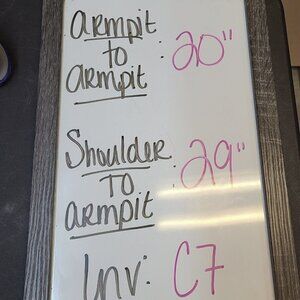 armpit
to
armpit : 20"
Shoulder
TO : 29"
armpit
Inv: C7